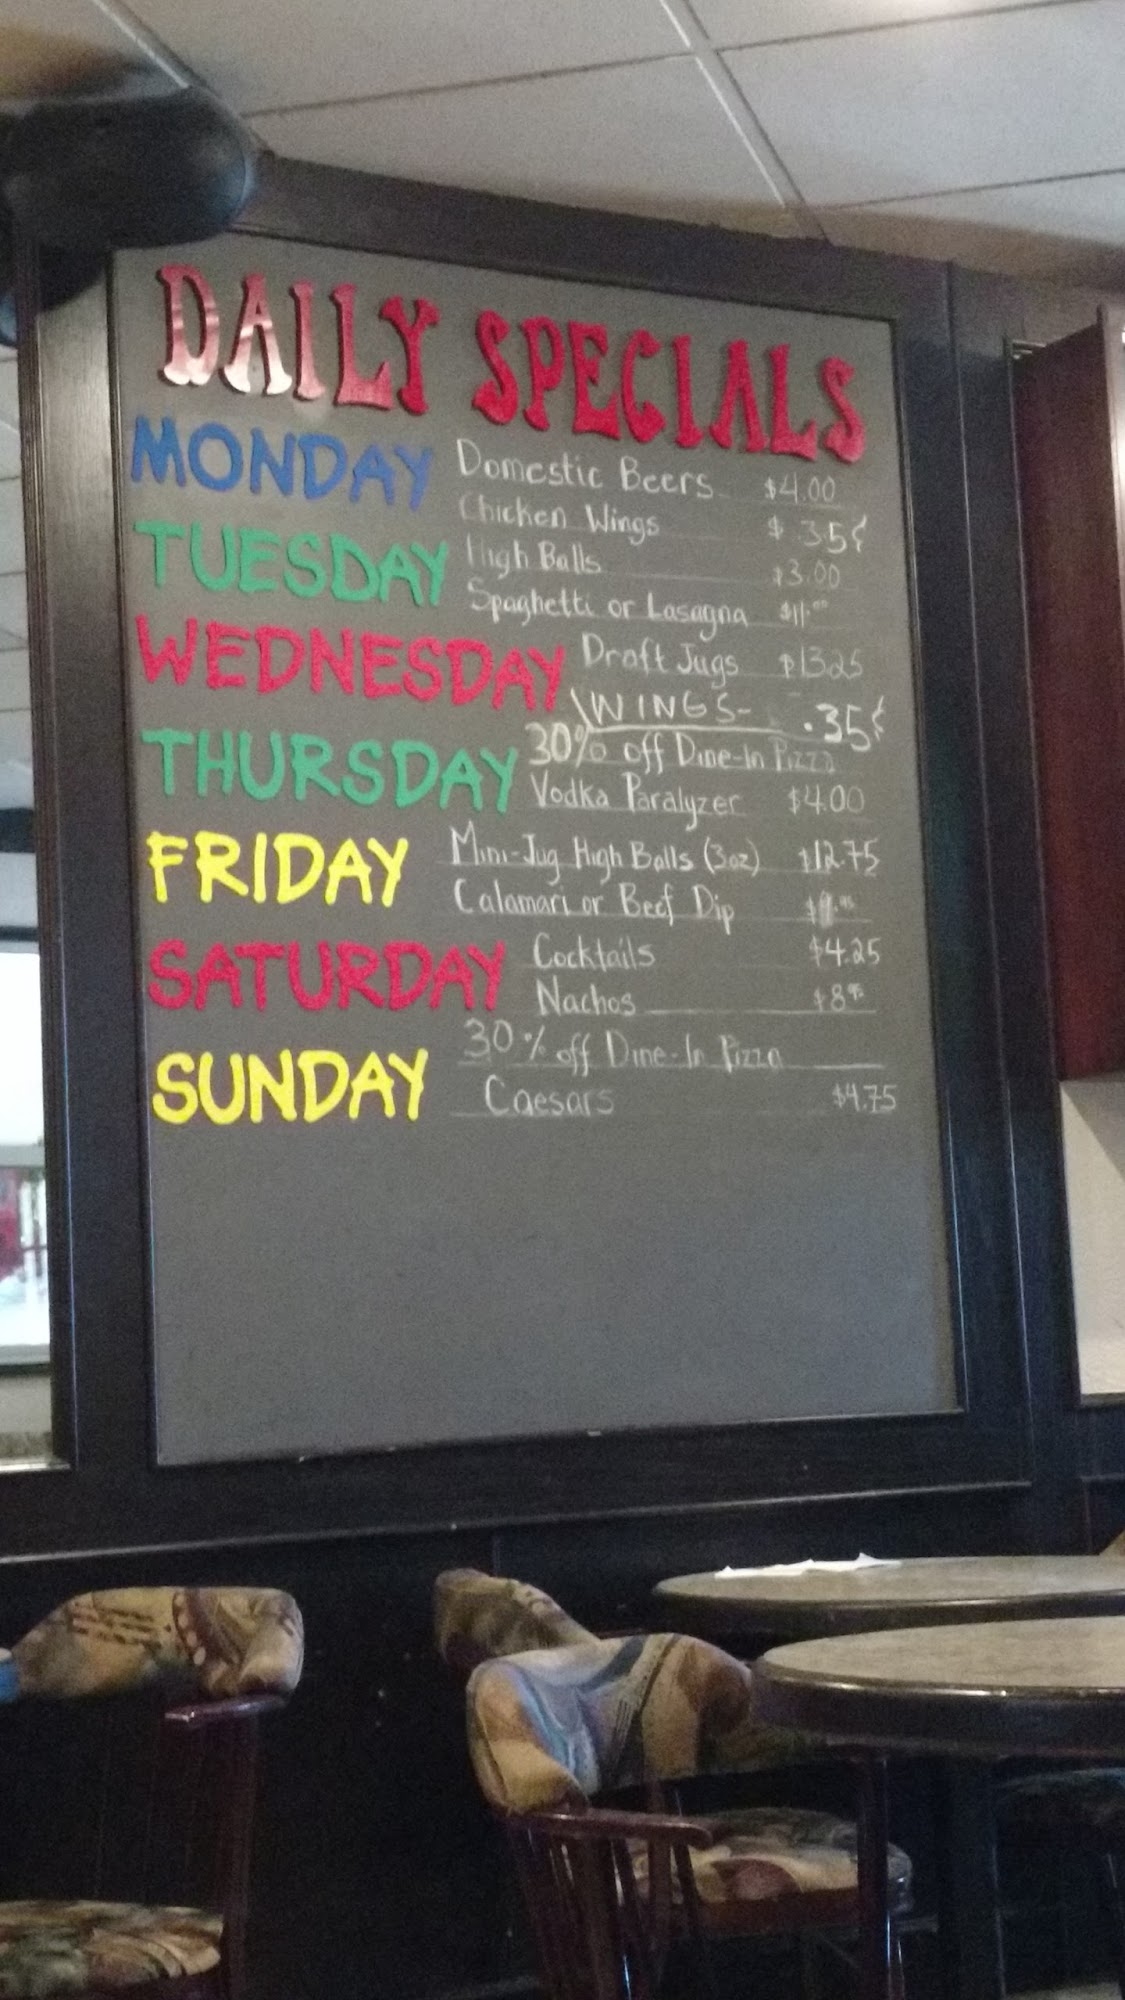 DAILY SPECIALS
MONDAY Domestic Beers $4.00
Chicken Wings $ .35¢
TUESDAY High Balls $3.00
Spaghetti or Lasagna $11.00
WEDNESDAY Draft Jugs $13.25
WINGS- .35¢
THURSDAY 30% off Dine-In Pizza
Vodka Paralyzer $4.00
FRIDAY Mini-Jug High Balls (3oz) $12.75
Calamari or Beef Dip
SATURDAY Cocktails $4.25
Nachos $8.95
SUNDAY 30% off Dine-In Pizza
Caesars $4.75